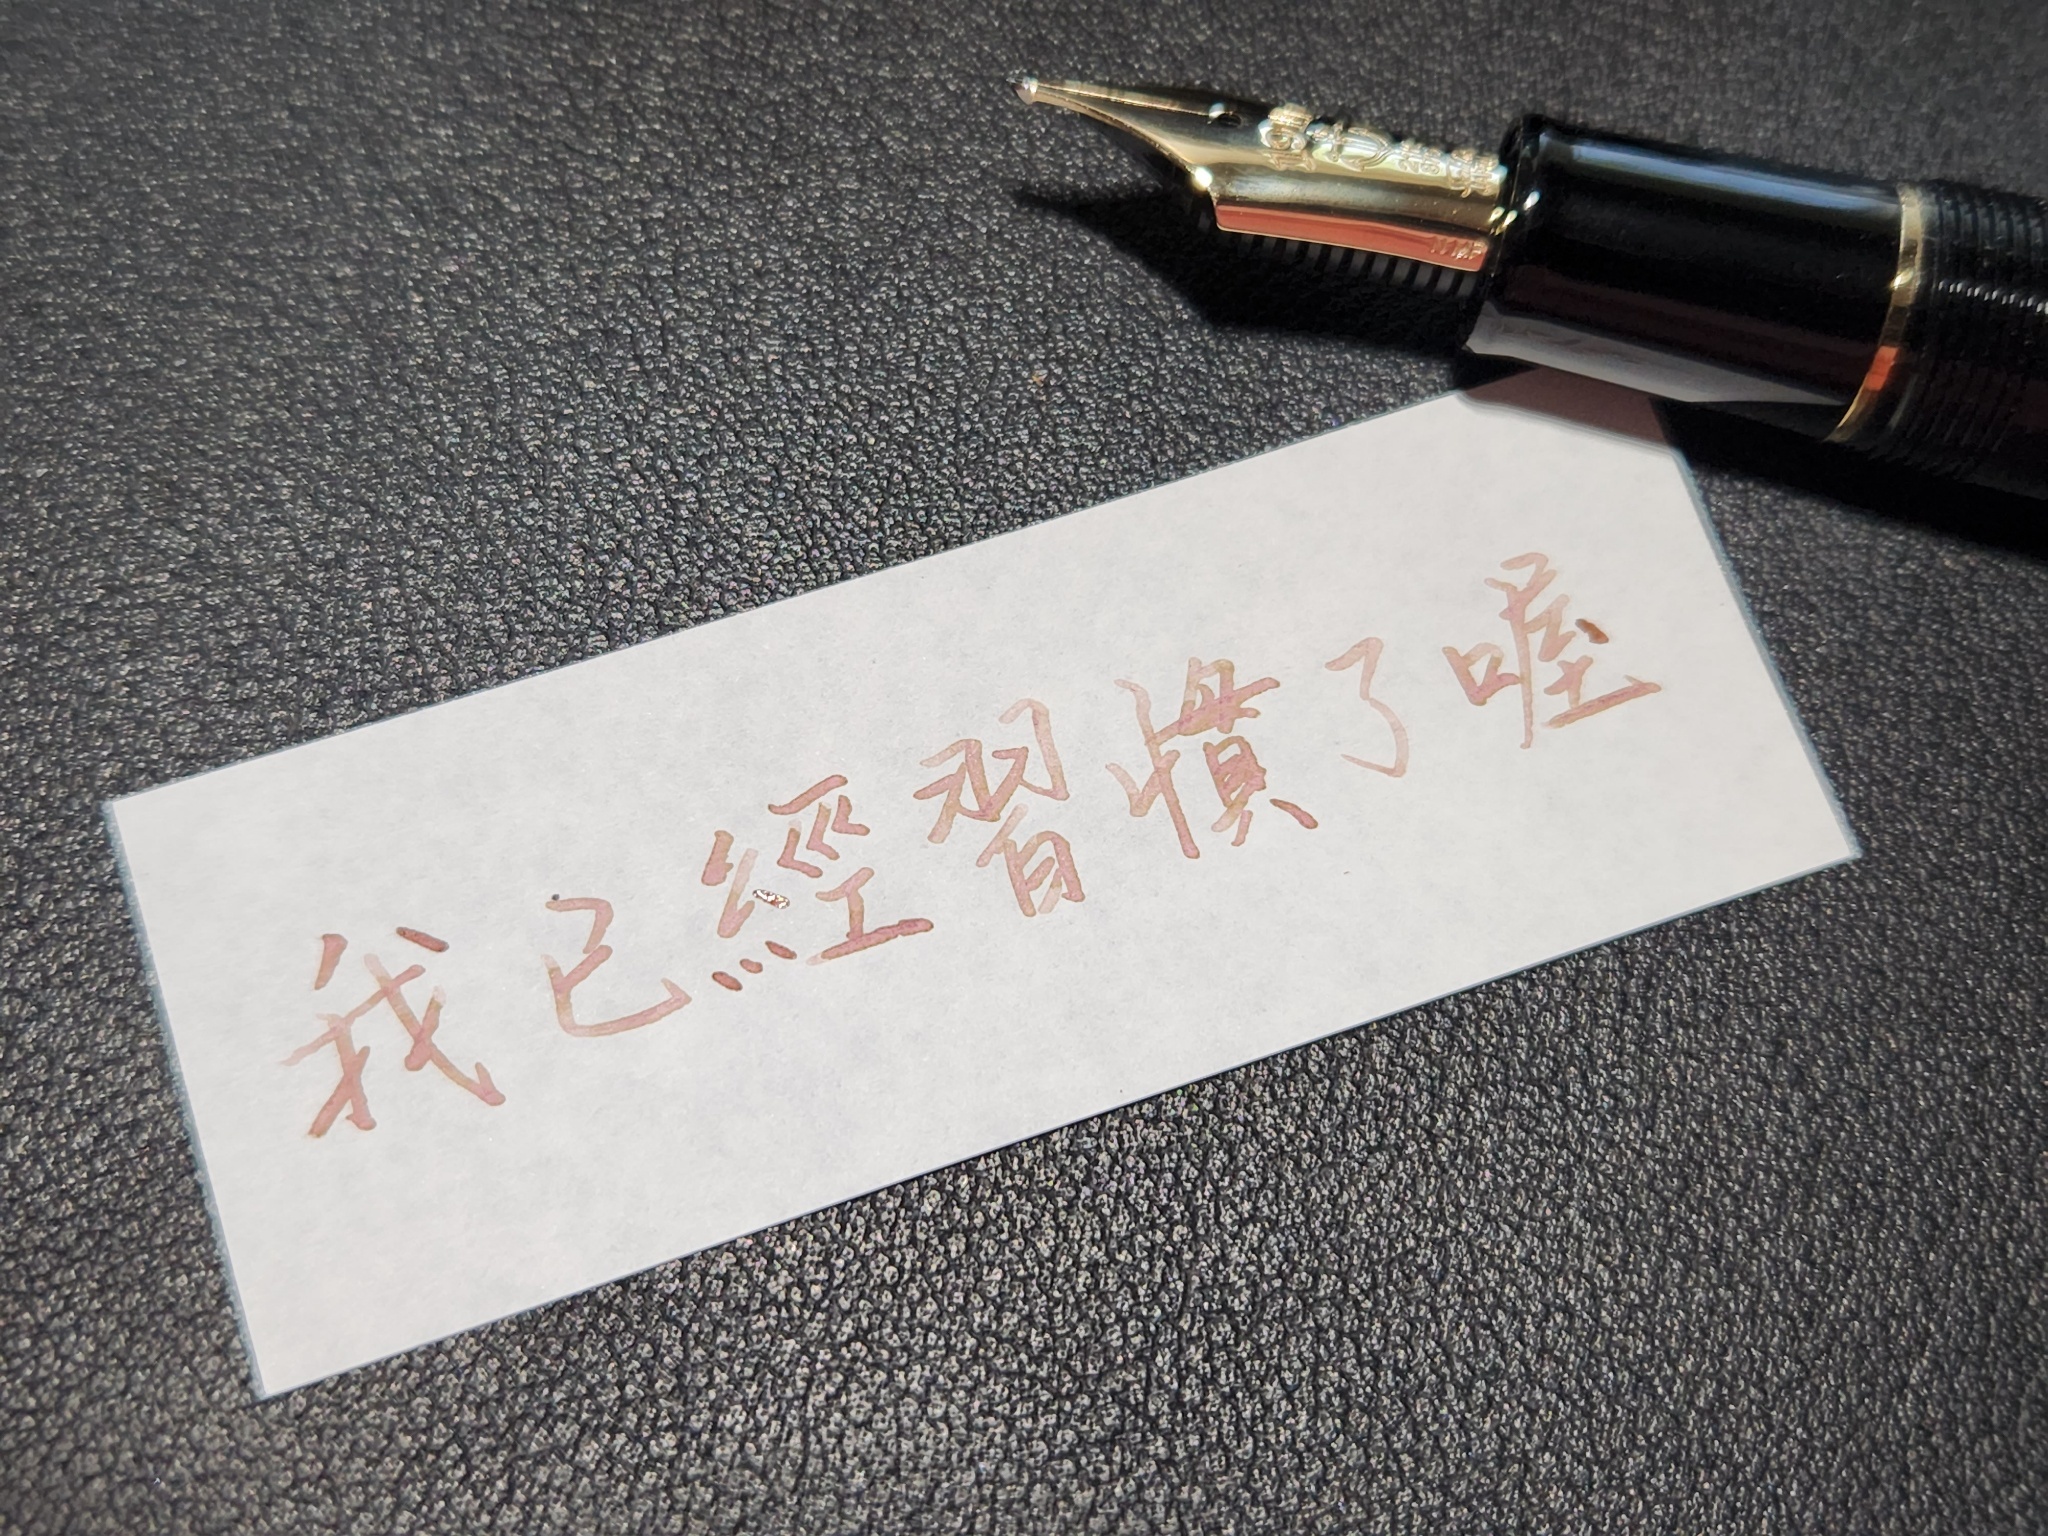 我已經習慣了喔